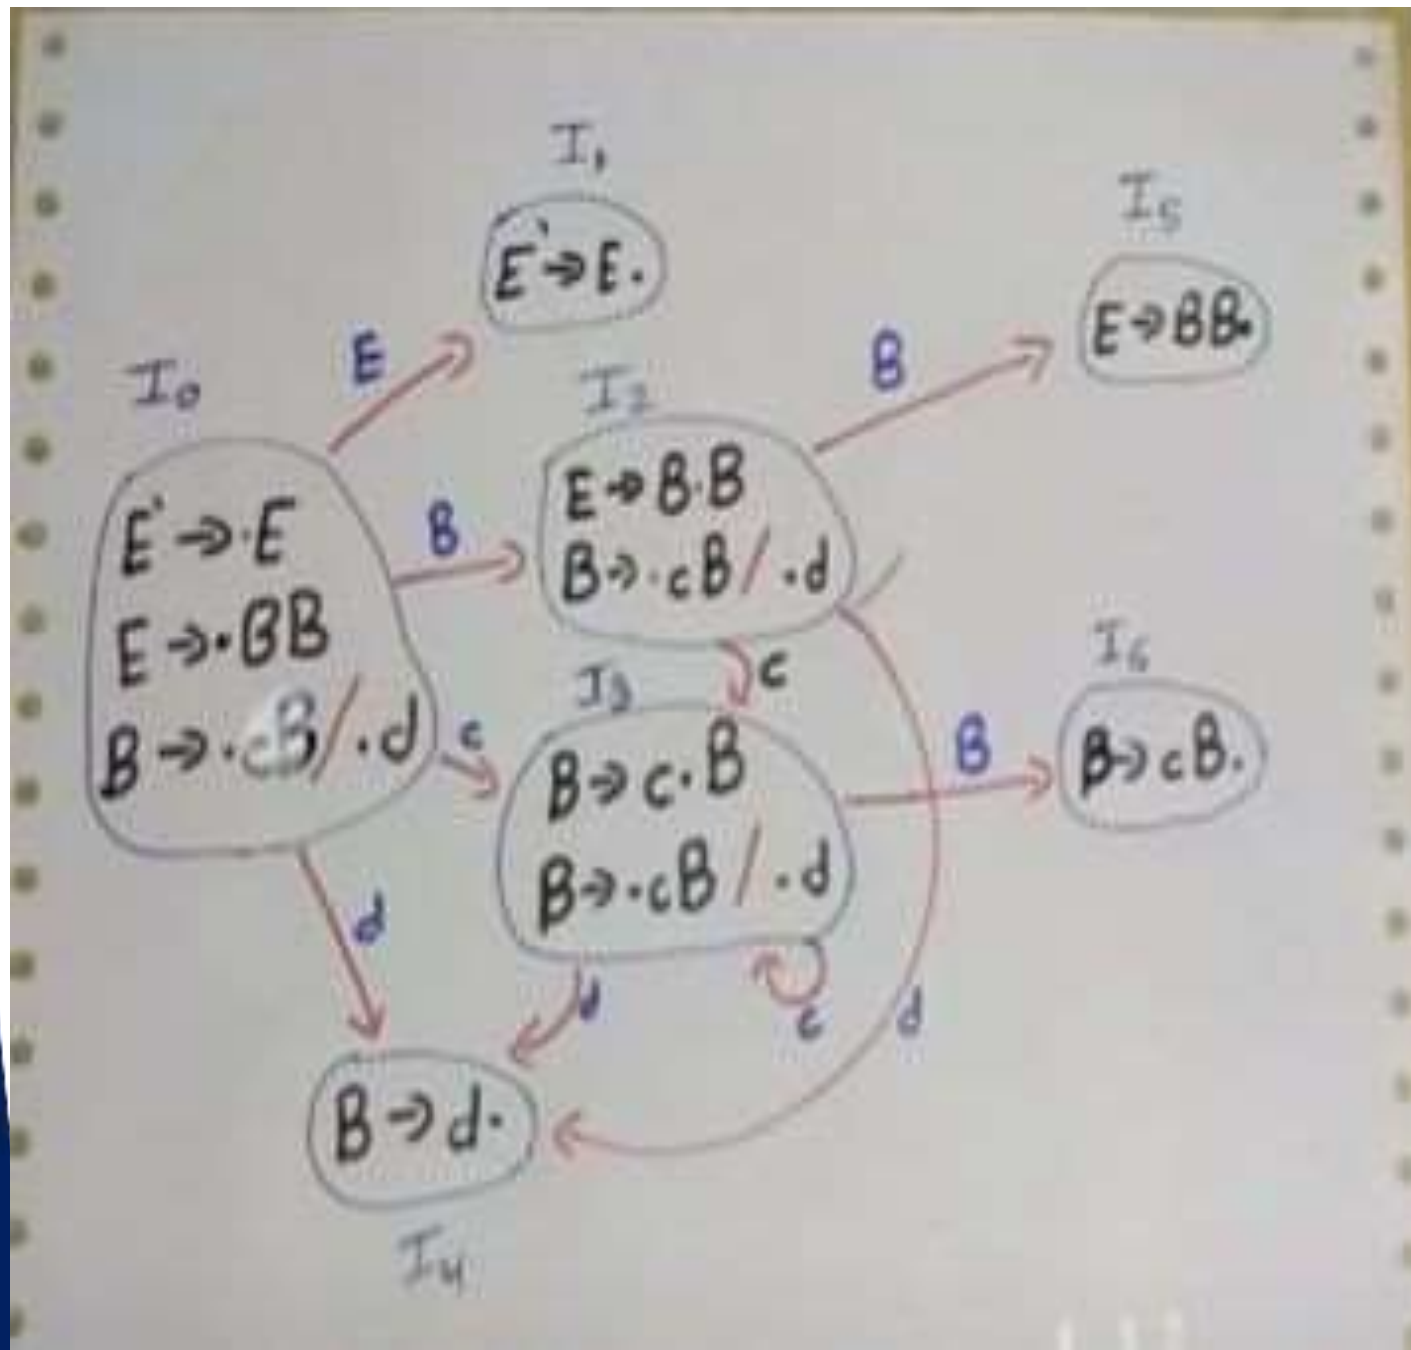 I₁
E'→E.
I₅
E→BB.
E
B
I₀
E'→.E
E→.BB
B→.cB/.d
B
I₂
E→B.B
B→.cB/.d
c
c
I₃
B→c.B
B→.cB/.d
B
I₆
B→cB.
d
d
c
d
B→d.
I₄